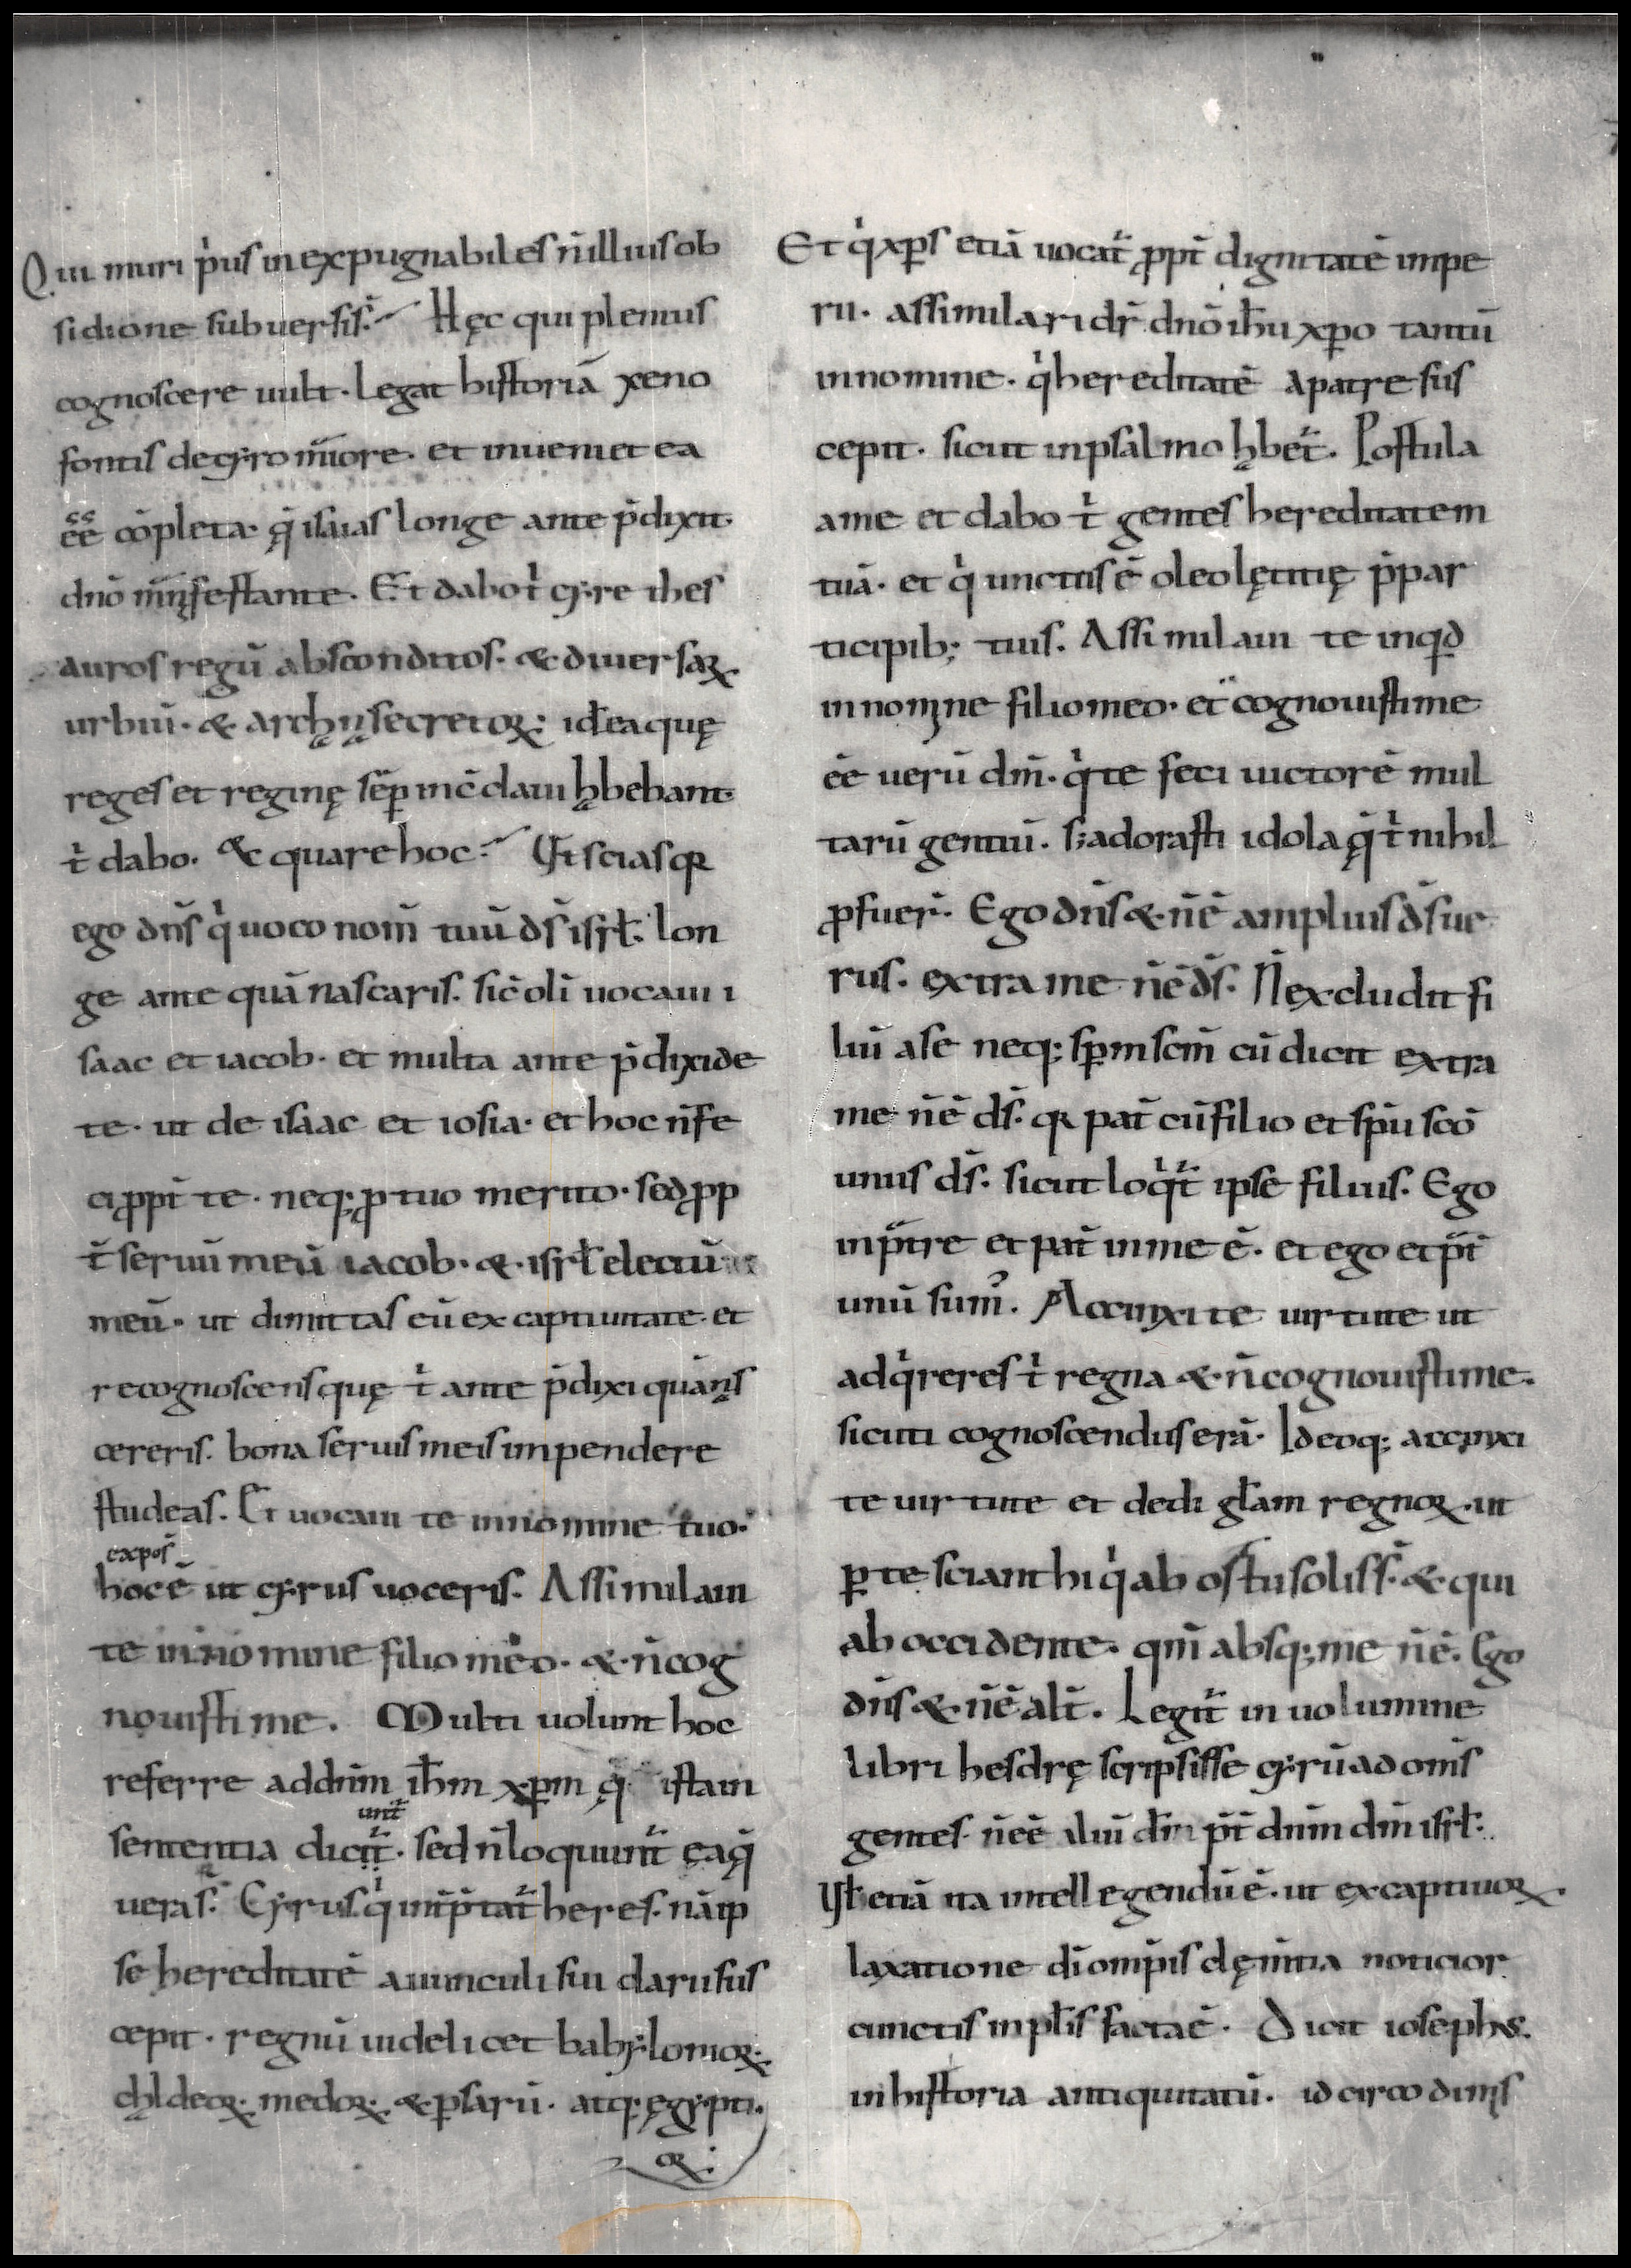 Qui muri p̍us inexpugnabiles n̄ illius ob
sidione subuersis. Hęc qui plenius
cognoscere uult. Legat historiā xeno
fontis de cẏro miore. et inueniet ea
ēē cōpleta. q̨̄ isaias longe ante p̄dixit.
dn̄o manifestante. Et dabo t̍ cẏre thes
auros regū absconditos. & diuersaꝝ
urbiū. & archana secretoꝝ. id ̄ ea quę
reges et reginę sēp in c̄claui hab̨ebant
t̍ dabo. & quare hoc? Ut scias qꝛ
ego dn̄s q̍ uoco nom̄ tuū ds̄ isrł. lon
ge ante quā nascaris. sic̄ oli̅ uocaui i
saac et iacob. et multa ante p̄dixi de
te. ut de isaac et iosia. et hoc n̄ fe
ci ꝓpt̄ te. neq; ꝓ tuo merito. sed ꝓp
t̄ seruū meū iacob. & isrł electū
meū. ut dimittas eū ex captiuitate. et
recognoscens quę t̍ ante p̄dixi quā nas
cereris. bona seruis meis impendere
studeas. Et uocaui te in nomine tuo.
expos̄
hoc ē ut cẏrus uoceris. Assimilaui
te in nomine filio meo. & n̄ cog
nouisti me. Multi uolunt hoc
referre ad dn̄m ih̄m xp̄m q̨̄ istam
unt᷑
sententia dicit᷑. sed n̄ loquunt᷑ ea q̨̄
uera s̄. Cẏrus q̍ int̄p̄tat᷑ heres. nā ip
se hereditatē auunculi sui darii sus
cepit. regnū uidelicet babẏlonioꝝ.
chaldeoꝝ. medoꝝ. & ꝑsarū. atq. ęgẏpti.
oꝝ.
Et q̍ xp̄s etiā uocat᷑ ꝓpt̄ dignitatē impe
rii. assimilari dr̄ dn̄o ih̄u xp̄o tantū
in nomine. q̍ hereditatē a patre sus
cepit. sicut in psalmo hab̨et᷑. Postula
a me et dabo t̍ gentes hereditatem
tuā. et q̍ unctus ē oleo lętitię p̄ par
ticipib; tuis. Assimilaui te inqd̄
in nomine filio meo. et n̄ cognouisti me
ēē uerū dm̄. q̍ te feci uictorē mul
tarū gentiū. s; adorasti idola q̨̄ t̍ nihil
ꝓfuer̄. Ego dn̄s & n̄ ē amplius ds̄ ue
rus. extra me n̄ ē ds̄. N̄ excludit fi
liū a se neq; sp̄m scm̄ cū dicit extra
me n̄ ē ds̄. qꝛ pat̄ cū filio et sp̄u scō
unus ds̄. sicut loq̍t᷑ ipse filius. Ego
in patre et pat̄ in me ē. et ego et pat̄
unū sum᷒. Accinxi te uirtute ut
adq̍reres t̍ regna & n̄ cognouisti me.
sicuti cognoscendus erā. Ideoq; accinxi
te uirtute et dedi głam regnoꝝ. ut
ꝑ te sciant hi q̍ ab ostu solis s̄. & qui
ab occidente. qm̄ absq; me n̄ ē. Ego
dn̄s & n̄ ē alt̄. Legit᷑ in uolumine
libri hesdrę scripsisse cẏrū ad om̄s
gentes. n̄ ēē aliū dm̄ p̄t̄ dn̄m dm̄ isrł.
Ist̄ etiā ita intellegendū ē. ut ex captiuoꝝ.
laxatione di̅ om̄ipt̄is clęm̄tia noticior
cunctis in pp̄lis facta ē. Dicit iosephus.
in historia antiquitatū. idcirco dimis